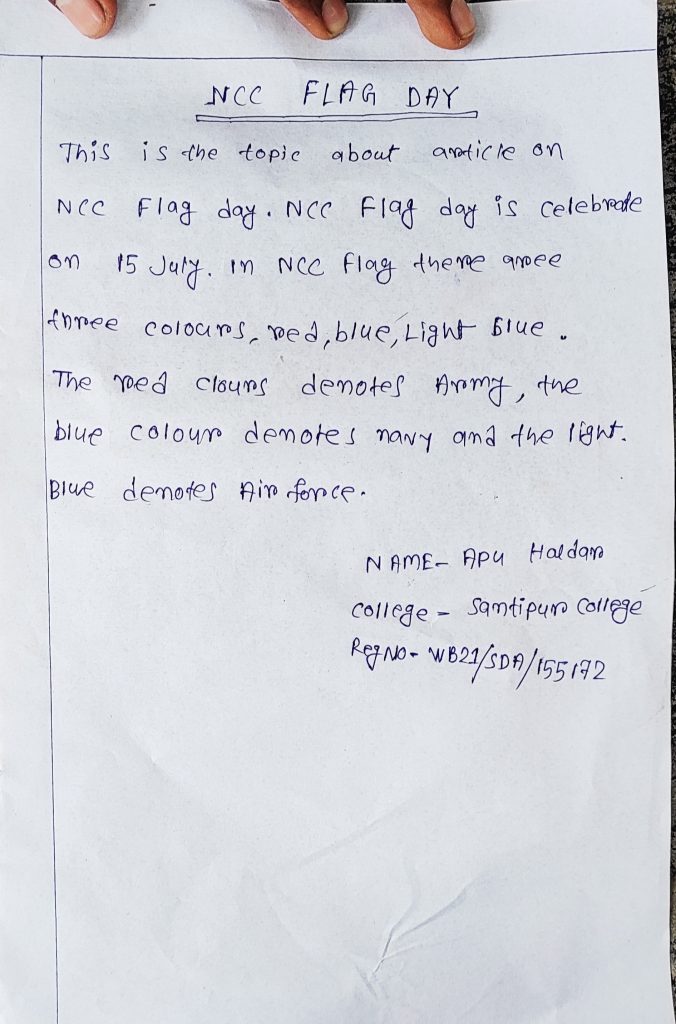 NCC FLAG DAY
This is the topic about article on
NCC Flag day. NCC Flag day is celebrate
on 15 July. in NCC flag there aree
three colours, red, blue, Light Blue.
The red clours denotes Army, the
blue colour denotes navy and the light.
Blue denotes Air force.
NAME- Apu Haldar
College - Santipur College
Reg No- WB21/SDA/155172